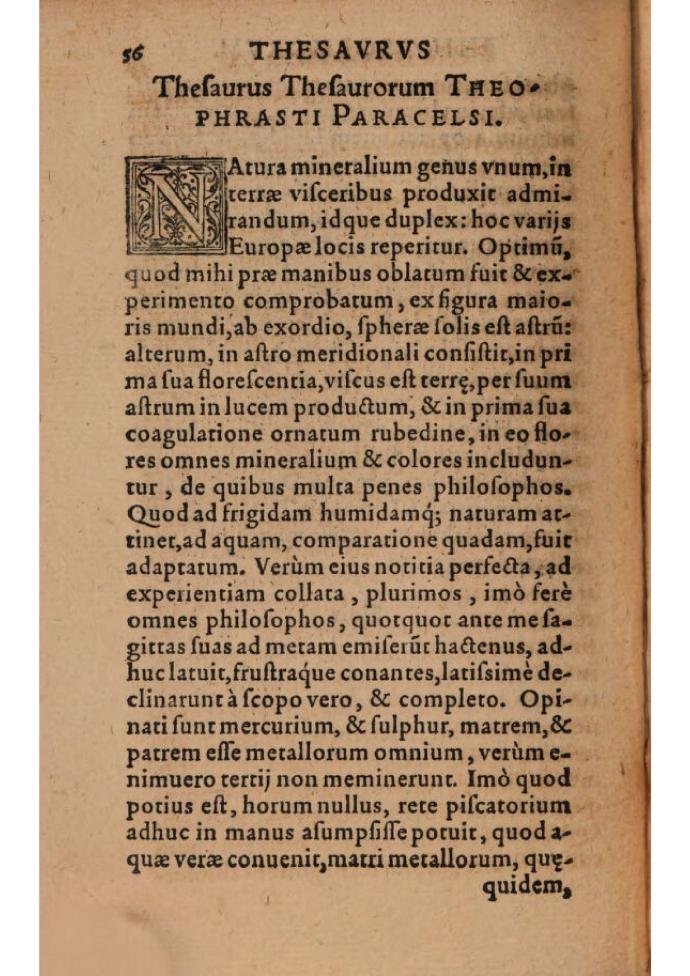 56 THESAVRVS
Theſaurus Theſaurorum THEO-
PHRASTI PARACELSI.
NAtura mineralium genus vnum, in
terræ viſceribus produxit admi-
randum, idque duplex: hoc varijs
Europæ locis reperitur. Optimū,
quod mihi præ manibus oblatum fuit & ex-
perimento comprobatum, ex figura maio-
ris mundi, ab exordio, ſpheræ ſolis eſt aſtrū:
alterum, in aſtro meridionali conſiſtit, in pri
ma ſua floreſcentia, viſcus eſt terrę, per ſuum
aſtrum in lucem productum, & in prima ſua
coagulatione ornatum rubedine, in eo flo-
res omnes mineralium & colores includun-
tur, de quibus multa penes philoſophos.
Quod ad frigidam humidamq́; naturam at-
tinet, ad aquam, comparatione quadam, fuit
adaptatum. Verùm eius notitia perfecta, ad
experientiam collata, plurimos, imò ferè
omnes philoſophos, quotquot ante me ſa-
gittas ſuas ad metam emiſerūt hactenus, ad-
huc latuit, fruſtraque conantes, latiſsimè de-
clinarunt à ſcopo vero, & completo. Opi-
nati ſunt mercurium, & ſulphur, matrem, &
patrem eſſe metallorum omnium, verùm e-
nimuero tertij non meminerunt. Imò quod
potius eſt, horum nullus, rete piſcatorium
adhuc in manus aſumpſiſſe potuit, quod a-
quæ veræ conuenit, matri metallorum, quę-
quidem,